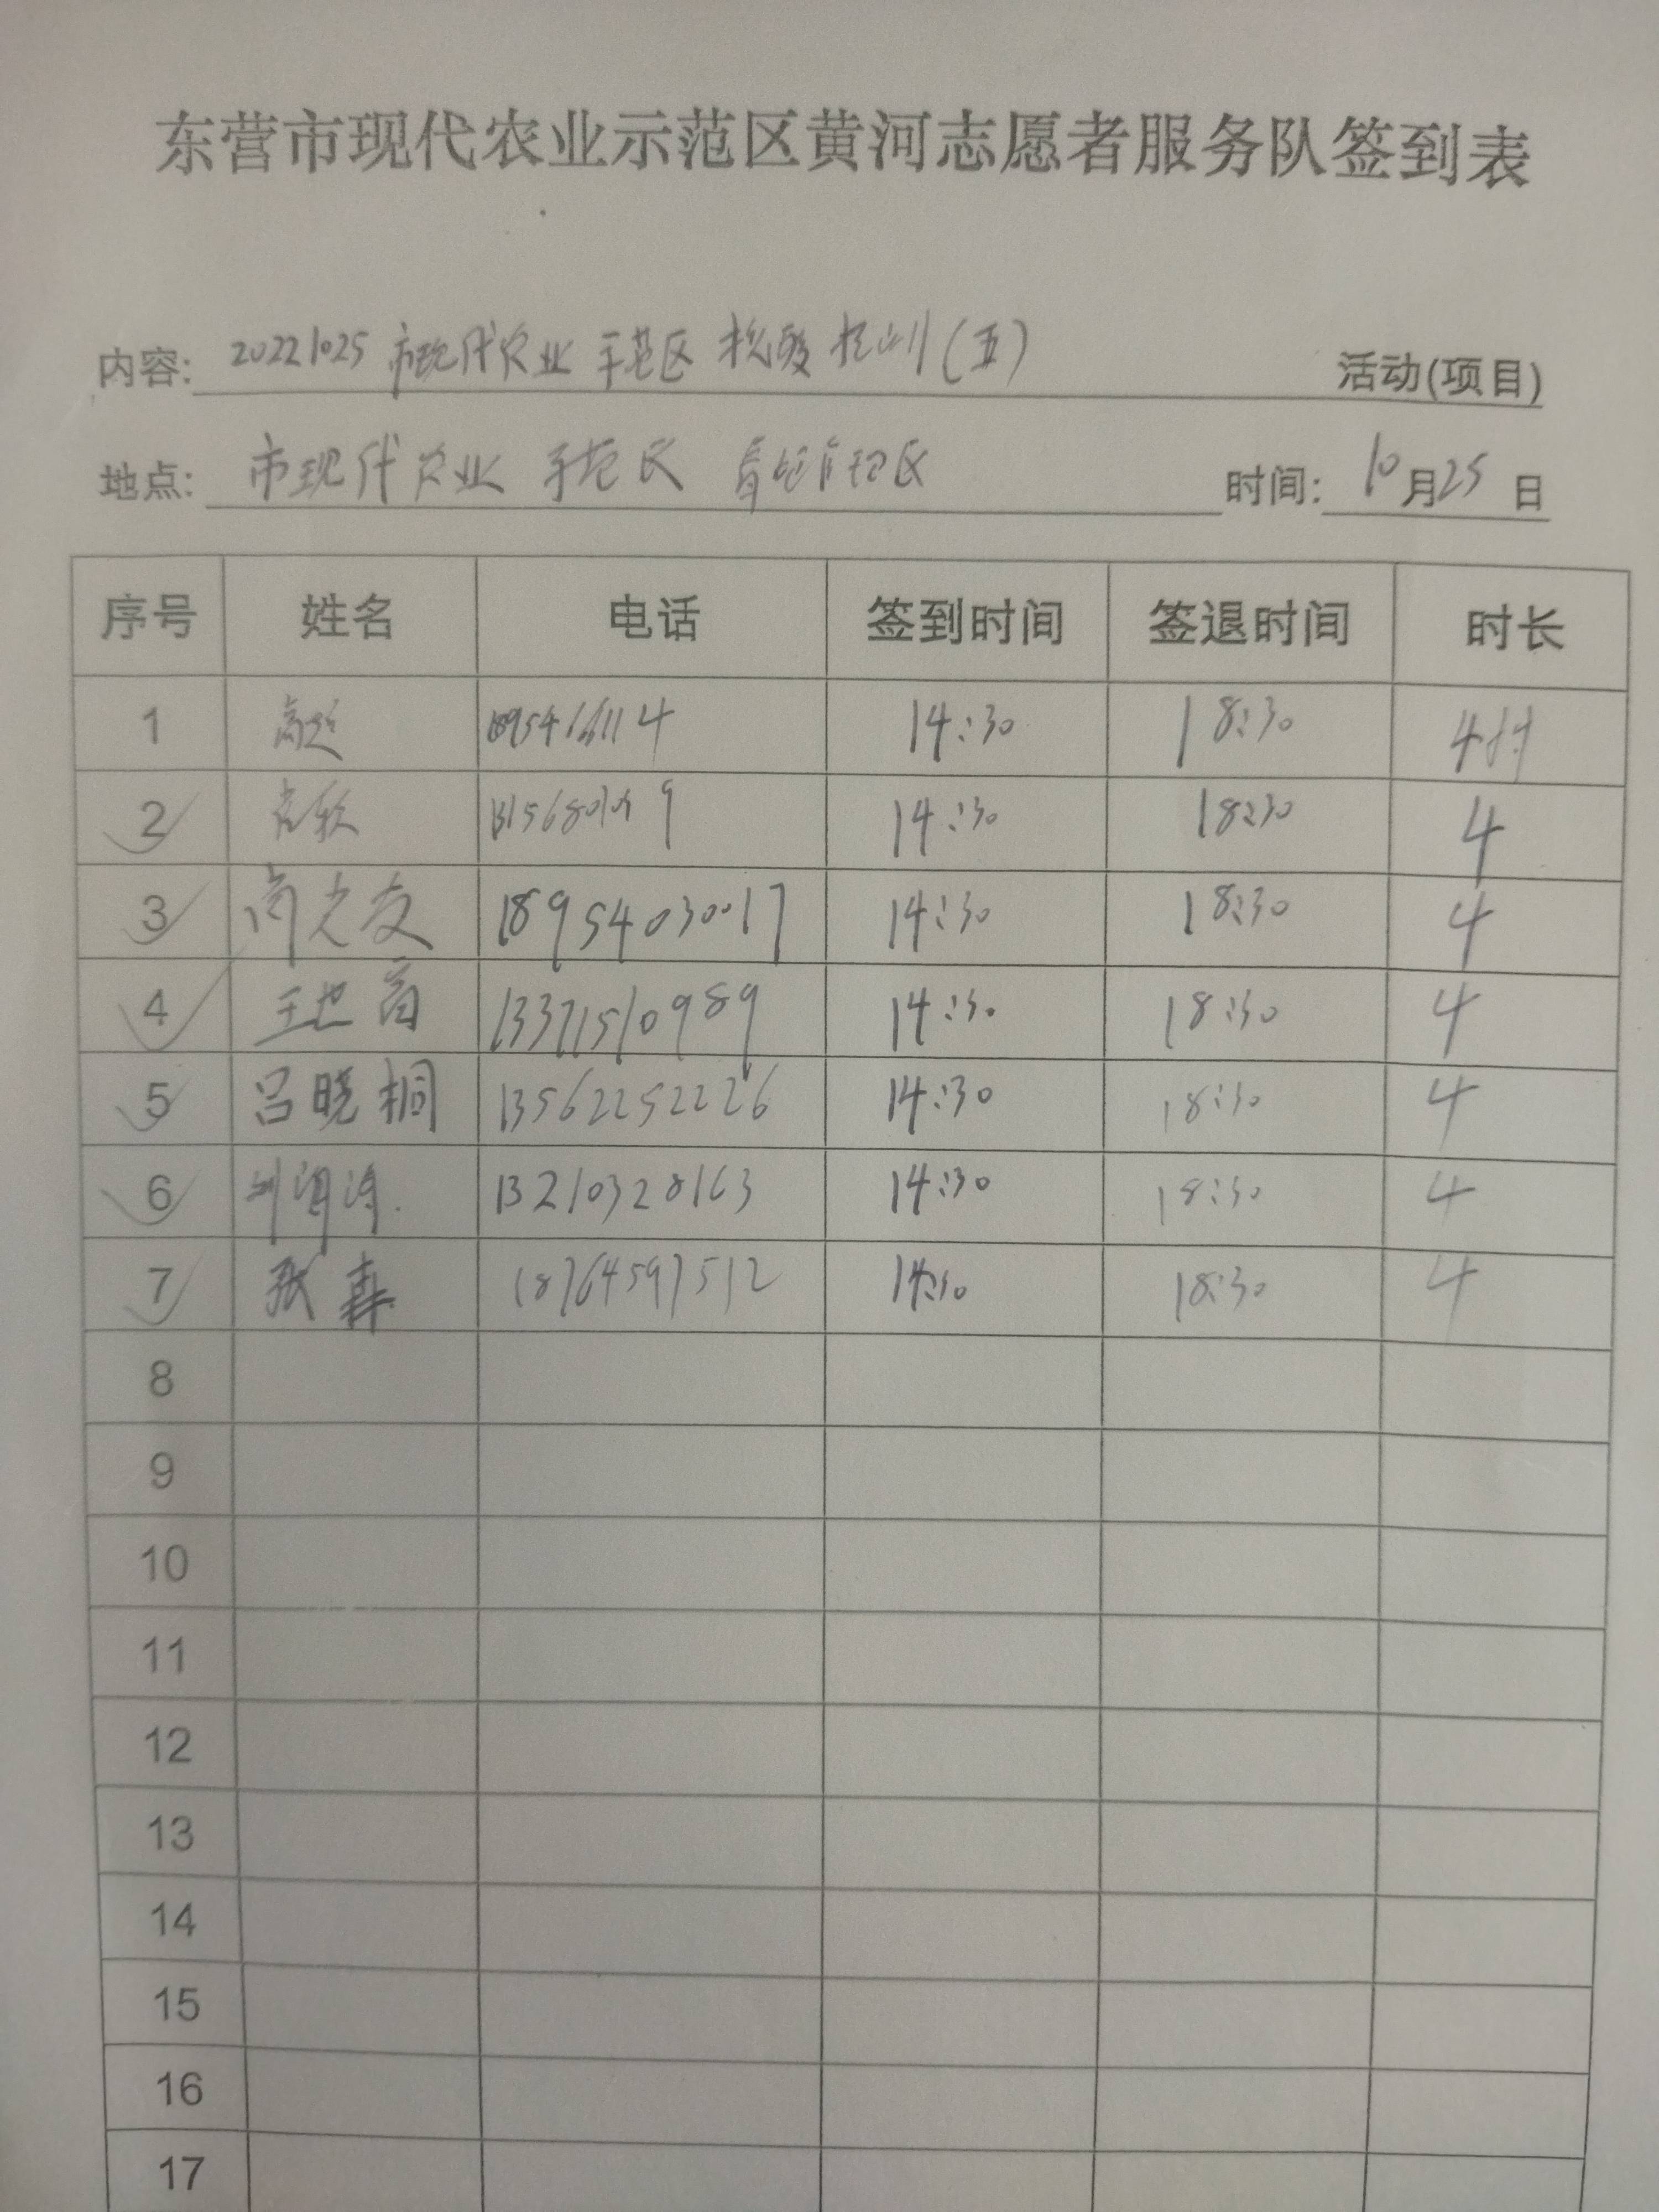 东营市现代农业示范区黄河志愿者服务队签到表
内容: 20221025 市现代农业示范区核酸检测(五) 活动(项目)
地点: 市现代农业示范区 时间: 10月25日
序号 姓名 电话 签到时间 签退时间 时长
1 高超 14:30 18:30 4小时
2 14:30 18:30 4
3 尚光友 18954030017 14:30 18:30 4
4 13371510989 14:30 18:30 4
5 吕晓桐 13562252226 14:30 18:30 4
6 13210328163 14:30 18:30 4
7 张 18764597512 14:30 18:30 4
8
9
10
11
12
13
14
15
16
17